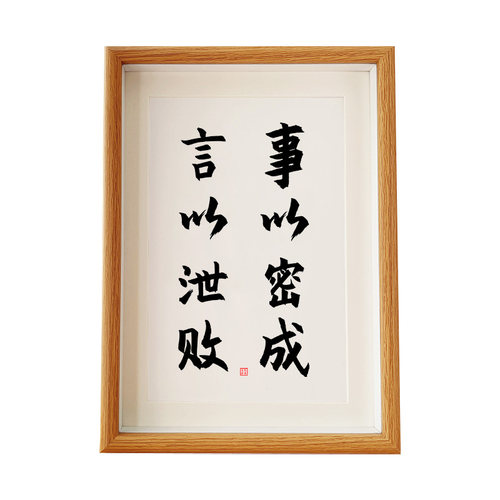 事以密成
言以泄败